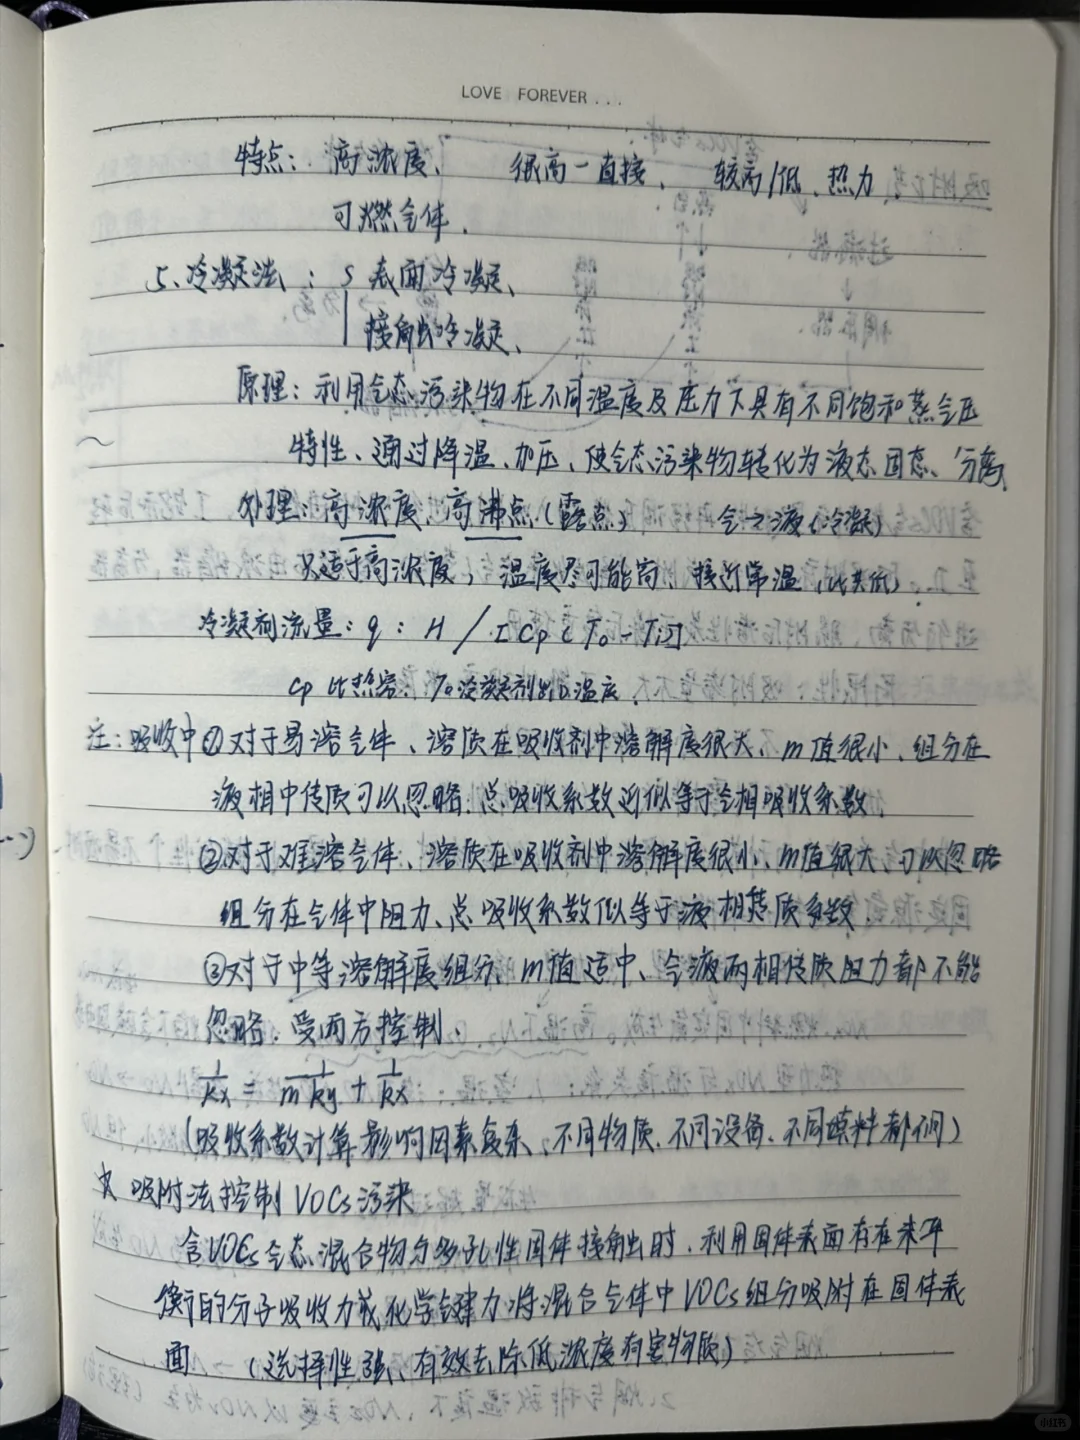 LOVE FOREVER...
特点：高浓度、 很高—直接、 较高/低、热力
可燃气体.
5、冷凝法： 表面冷凝、
接触冷凝、
原理：利用气态污染物在不同温度及压力下具有不同饱和蒸气压
特性、通过降温、加压、使气态污染物转化为液态固态、分离、
处理：高浓度、高沸点（露点） 气→液（冷凝）
只适于高浓度，温度尽可能高，接近常温
冷凝剂流量：q：H / [Cp(T₀-Ti)]
Cp 比热容 T₀冷凝剂出口温度、
注：吸收中①对于易溶气体、溶质在吸收剂中溶解度很大、m值很小、组分在
液相中传质可以忽略.总吸收系数近似等于气相吸收系数
②对于难溶气体、溶质在吸收剂中溶解度很小、m值很大、可以忽略
组分在气体中阻力、总吸收系数似等于液相传质系数.
③对于中等溶解度组分、m值适中、气液两相传质阻力都不能
忽略.受两方控制、
1/kx = 1/mky + 1/kx
（吸收系数计算影响因素复杂、不同物质、不同设备、不同填料都不同）
吸附法控制VOCs污染
含VOCs气态混合物与多孔性固体接触时.利用固体表面存在未平
衡的分子吸收力或化学键力.将混合气体中VOCs组分吸附在固体表
面 （选择性强、有效去除低浓度有害物质）
小红书